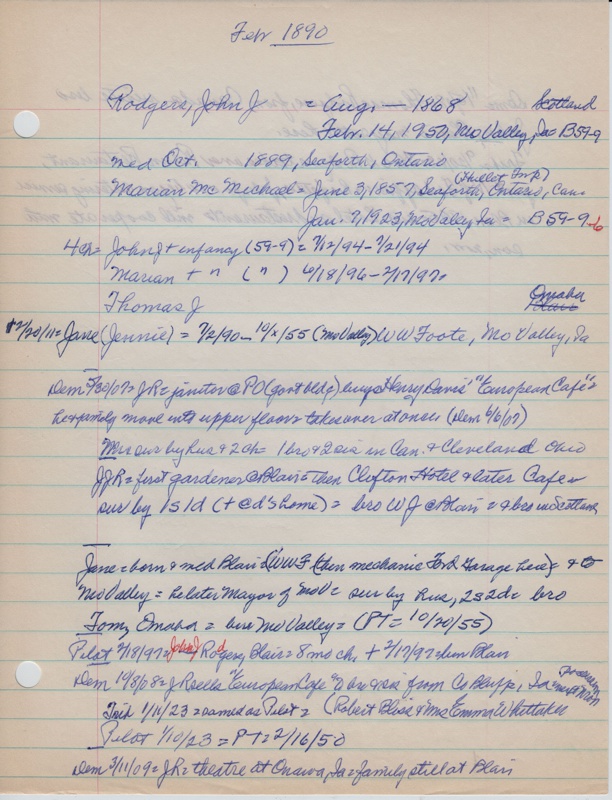 Feb 1890
Rodgers, John J = Aug, — 1868 Scotland
Feb. 14, 1950, Mo Valley, Ia = B59-9
med Oct. 1889, Seaforth, Ontario
(Hullet Tnp)
Marian McMichael = June 3, 1857, Seaforth, Ontario, Can
Jan. 7, 1923, Mo Valley, Ia = B59-9-6
4 ch = John J + infancy (59-9) = 7/12/94 - 7/21/94
Marian + " (") 6/18/96 - 2/17/97=
Thomas J Omaha
2/20/11= Jane (Jennie) = 7/2/90 - 10/ /55 (Mo Valley) W W Foote, Mo Valley, Ia
Dem 5/30/07= JR = janitor @ PO (govt bldg) buys Henry Davis' "European Cafe" =
he & family move into upper floor & takes over at once (Dem 6/6/07)
Mrs sur by hus & 2 ch = 1 bro & 2 sis in Can. & Cleveland Ohio
JJR = first gardener @ Blair = then Clifton Hotel & later Cafe =
sur by 1s 1d (+ @ d's home) = bro W J @ Blair = & bro in Scotland
Jane = born & med Blair (WWF (then mechanic Ford Garage here) & to
Mo Valley = he later Mayor of MoV = sur by hus, 2s 2d = bro
Tom, Omaha = bur Mo Valley = (PT = 10/20/55)
Pilot 2/18/97= John J Rodgers, Blair = 8 mo ch, + 2/17/97= bur Blair
Dem 10/8/08= J R sells "European Cafe" to bro & sis from Co Bluffs, Ia =
Trib 1/11/23 = same as Pilot = (Robert Bliss & Mrs Emma Whittaker
Pilot 1/10/23 = PT = 2/16/50
Dem 3/11/09= JR = theatre at Onawa, Ia = family still at Blair